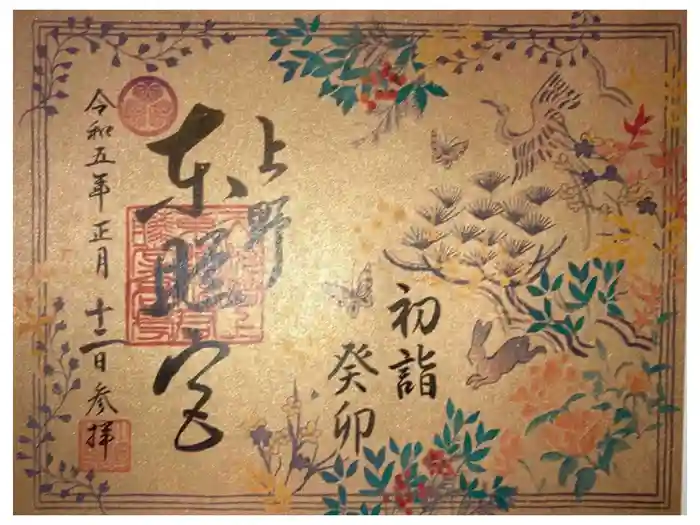 初詣
癸卯
上野
東照宮
令和五年正月十二日参拝